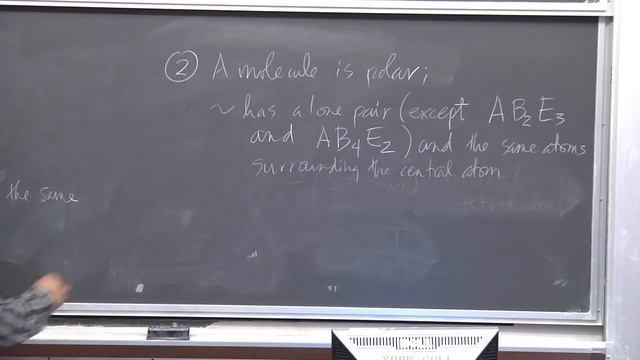 ② A molecule is polar;
~ has a lone pair (except AB₂E₃
and AB₄E₂) and the same atoms
surrounding the central atom
the same
YORK COLL